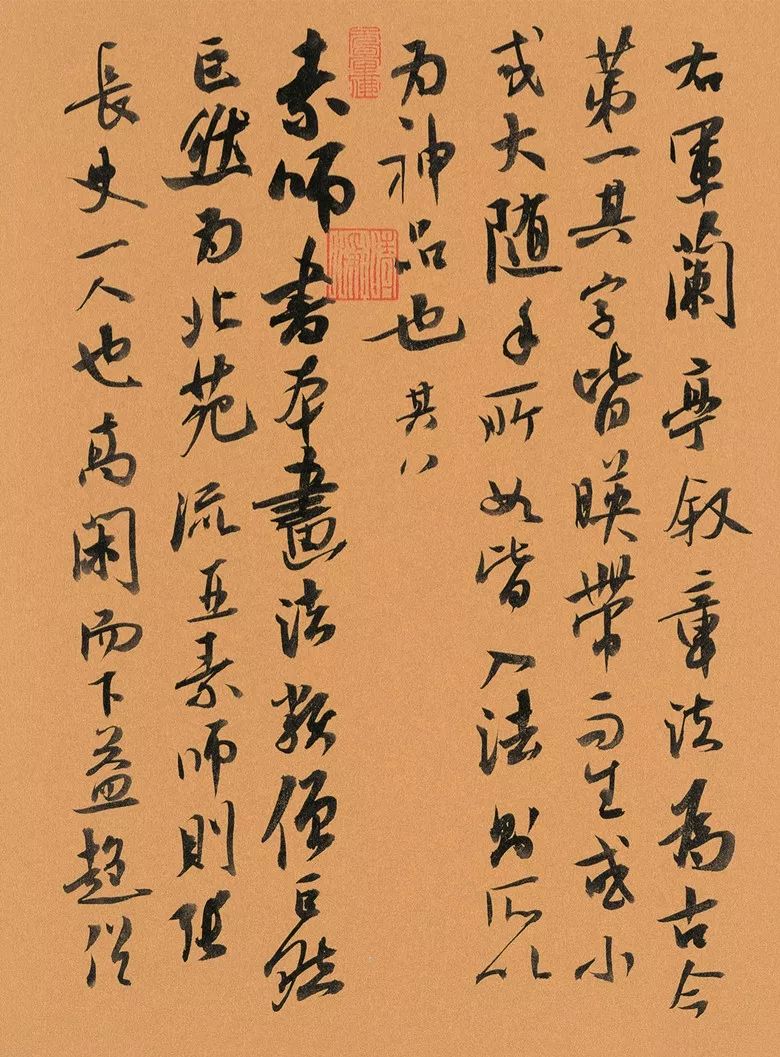 右軍蘭亭叙章法為古今
第一其字皆暎帶而生或小
或大随手所如皆入法則所以
為神品也 其八
素師書本畫法類僧巨然
巨然為北苑流亞素師則張
長史一人也高閑而下益趨俗